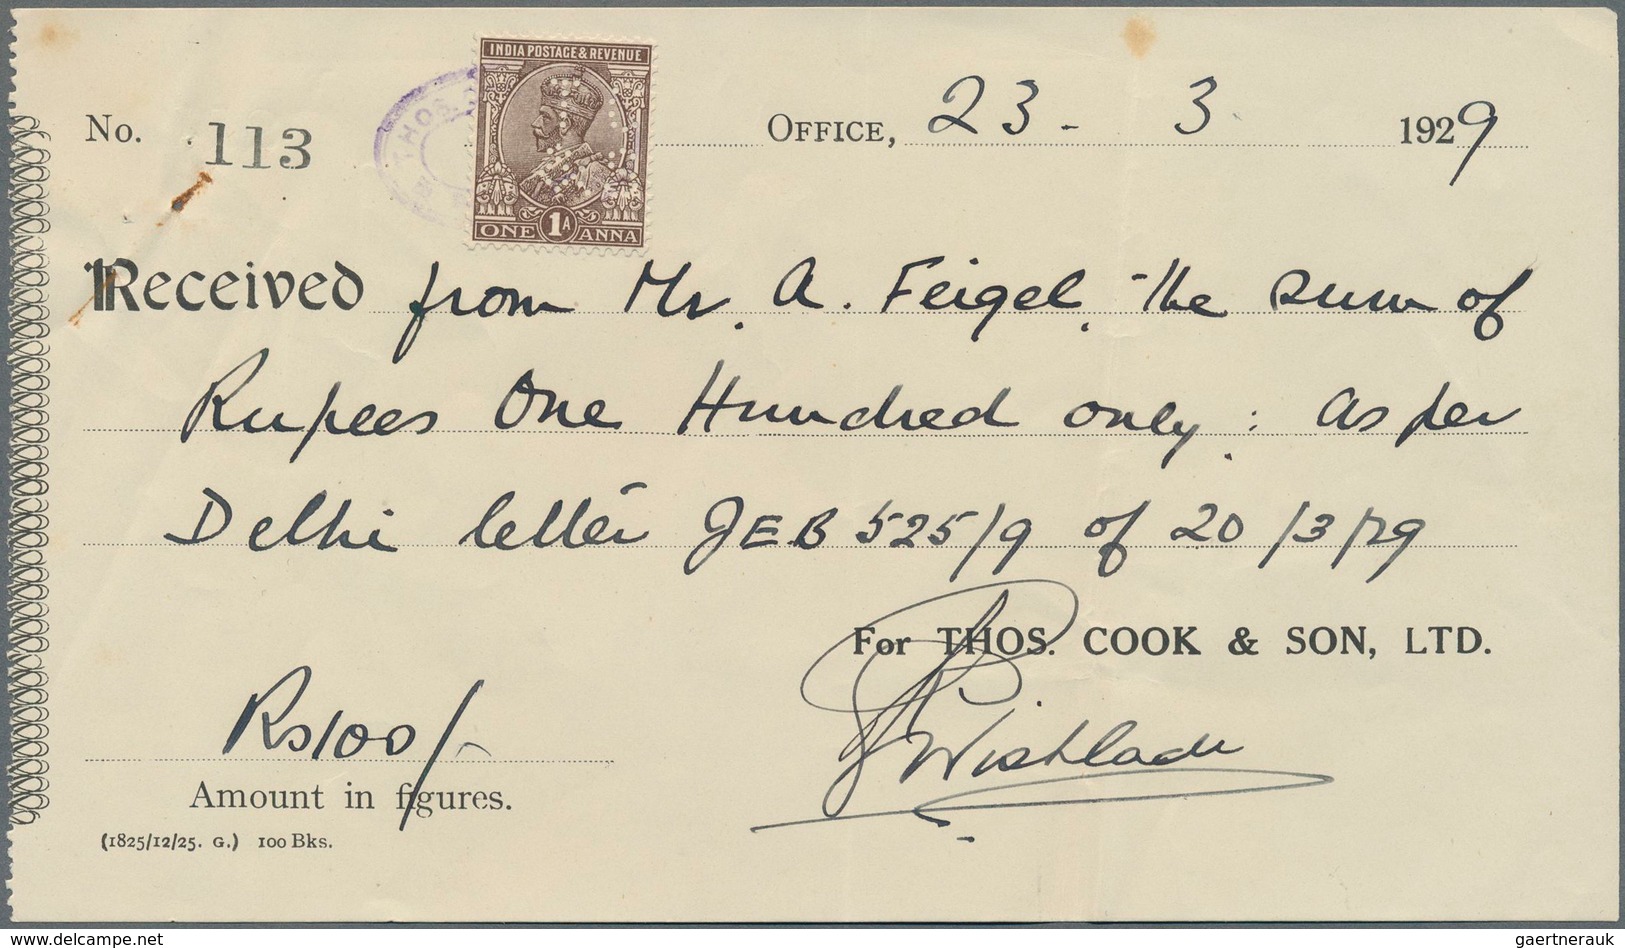 INDIA POSTAGE & REVENUE
ONE 1A ANNA
THOS.
No. 113
OFFICE, 23 - 3 1929
Received from Mr. A. Feigel, the sum of
Rupees One Hundred only: as per
Delhi letter JEB 525/9 of 20/3/29
For THOS. COOK & SON, LTD.
Rs100/-
Amount in figures.
(1825/12/25. G.) 100 Bks.
www.delcampe.net
gaertnerauk